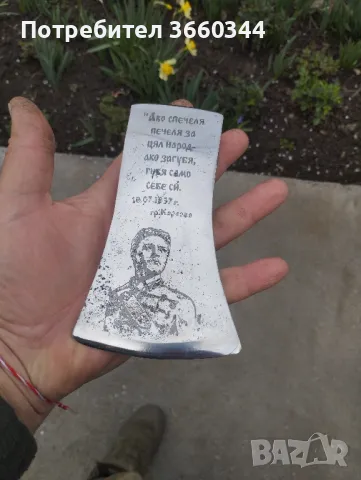 Потребител 3660344
"Ако спечеля
печеля за
цял народ-
ако загубя,
губя само
себе си.
18.07.1837 г.
гр. Карлово
BAZAR